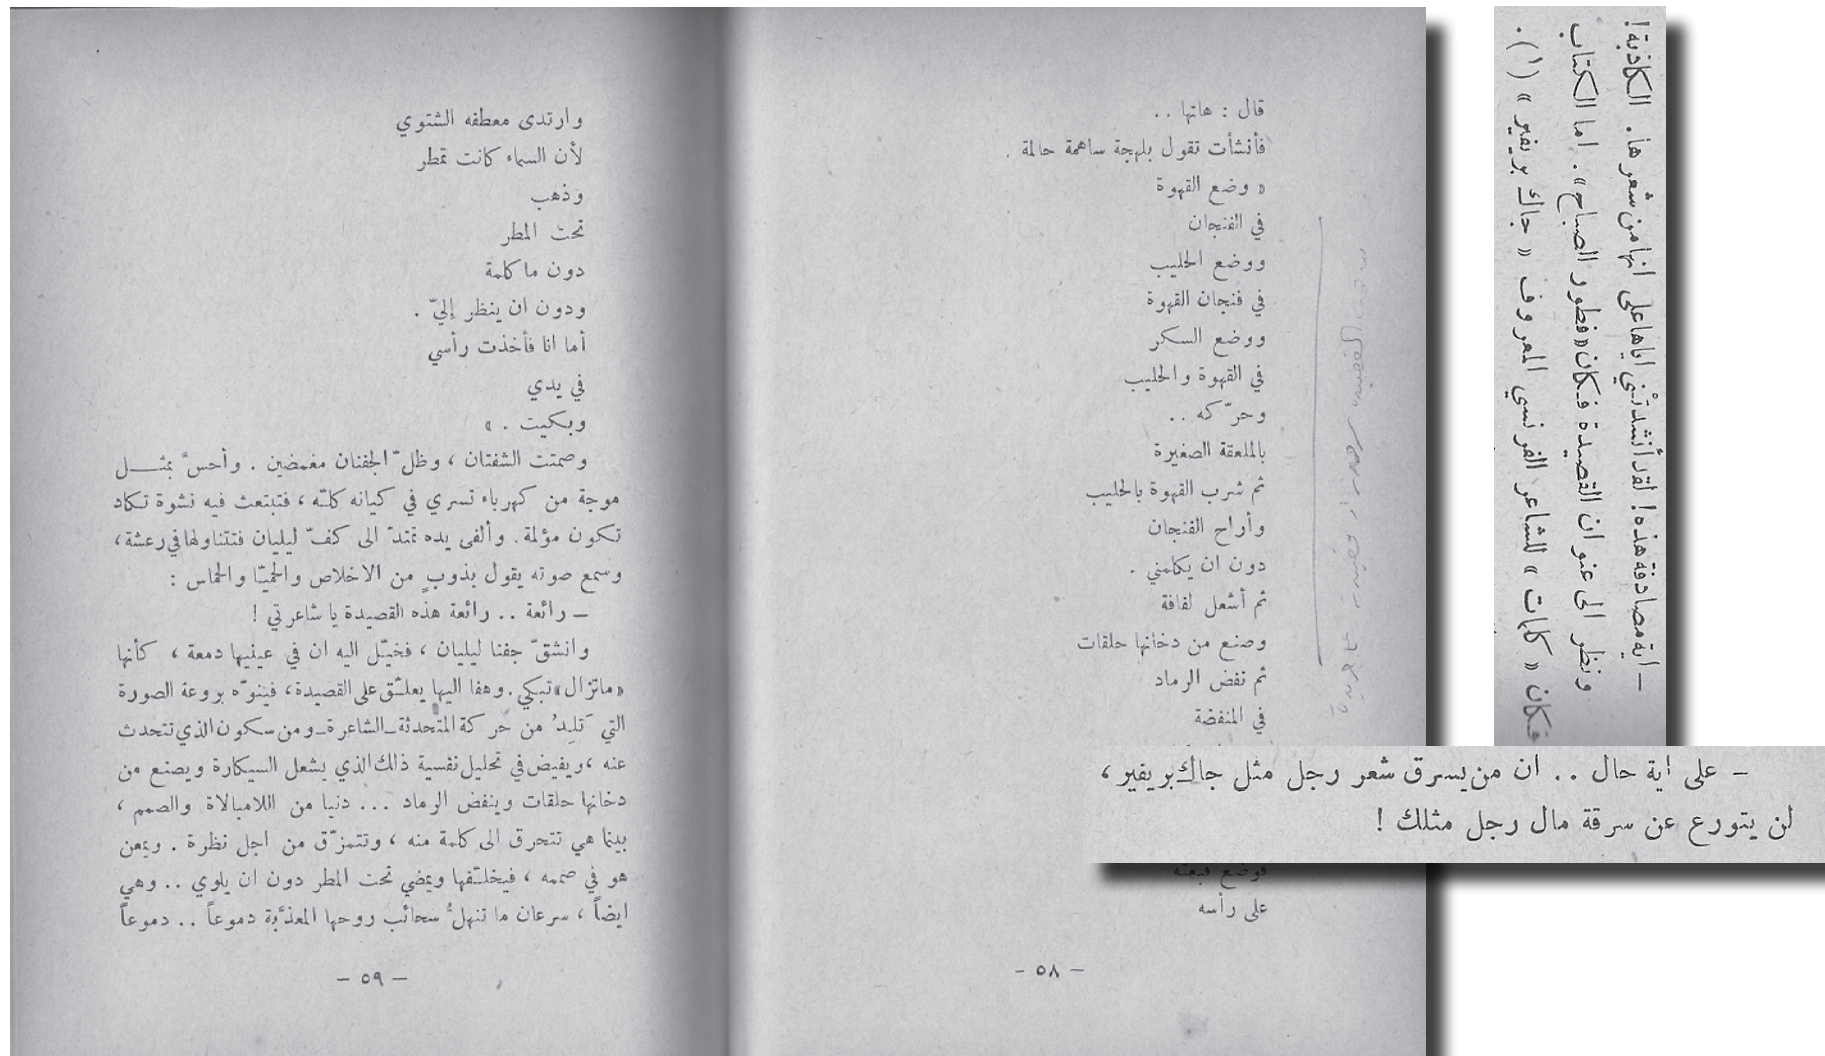 قال : هاتها . .
فأنشأت تقول بلهجة ساهمة حالمة .
« وضع القهوة
في الفنجان
ووضع الحليب
في فنجان القهوة
ووضع السكر
في القهوة والحليب
وحرّكه . .
بالملعقة الصغيرة
ثم شرب القهوة بالحليب
وأراح الفنجان
دون ان يكلمني .
ثم أشعل لفافة
وصنع من دخانها حلقات
ثم نفض الرماد
في المنفضة
فوضع قبعته
على رأسه
- ٥٨ -
وارتدى معطفه الشتوي
لأن السماء كانت تمطر
وذهب
تحت المطر
دون ما كلمة
ودون ان ينظر إليّ .
أما انا فأخذت رأسي
في يدي
وبكيت . »
وصمتت الشفتان ، وظلّ الجفنان مغمضين . وأحسّ بمثـــل
موجة من كهرباء تسري في كيانه كلّه ، فتبتعث فيه نشوة تكاد
تكون مؤلمة . وألفى يده تمتدّ الى كفّ ليليان فتتناولها في رعشة ،
وسمع صوته يقول بذوبٍ من الاخلاص والحميّا والحماس :
– رائعة . . رائعة هذه القصيدة يا شاعرتي !
وانشقّ جفنا ليليان ، فخيّل اليه ان في عينيها دمعة ، كأنها
«ماتزال» تبكي . وهفا اليها يعلّق على القصيدة ، فينوّه بروعة الصورة
التي تَلِدُ من حركة المتحدثة – الشاعرة – ومن سكون الذي تتحدث
عنه ، ويفيض في تحليل نفسية ذلك الذي يشعل السيكارة ويصنع من
دخانها حلقات وينفض الرماد ... دنيا من اللامبالاة والصمم ،
بينما هي تتحرق الى كلمة منه ، وتتمزّق من اجل نظرة . ويمعن
هو في صممه ، فيخلّفها ويمضي تحت المطر دون ان يلوي . . وهي
ايضاً ، سرعان ما تنهلّ سحائب روحها المعذّبة دموعاً . . دموعاً
- ٥٩ -
– اية مصادفة هذه ! لقد أنشدتْني اياها على انها من شعرها . الكاذبة !
ونظر الى عنوان القصيدة فكان « فطور الصباح » . اما الكتاب
فكان « كلمات » للشاعر الفرنسي المعروف « جاك بريفير » (١) .
– على اية حال . . ان من يسرق شعر رجل مثل جاك بريفير ،
لن يتورع عن سرقة مال رجل مثلك !